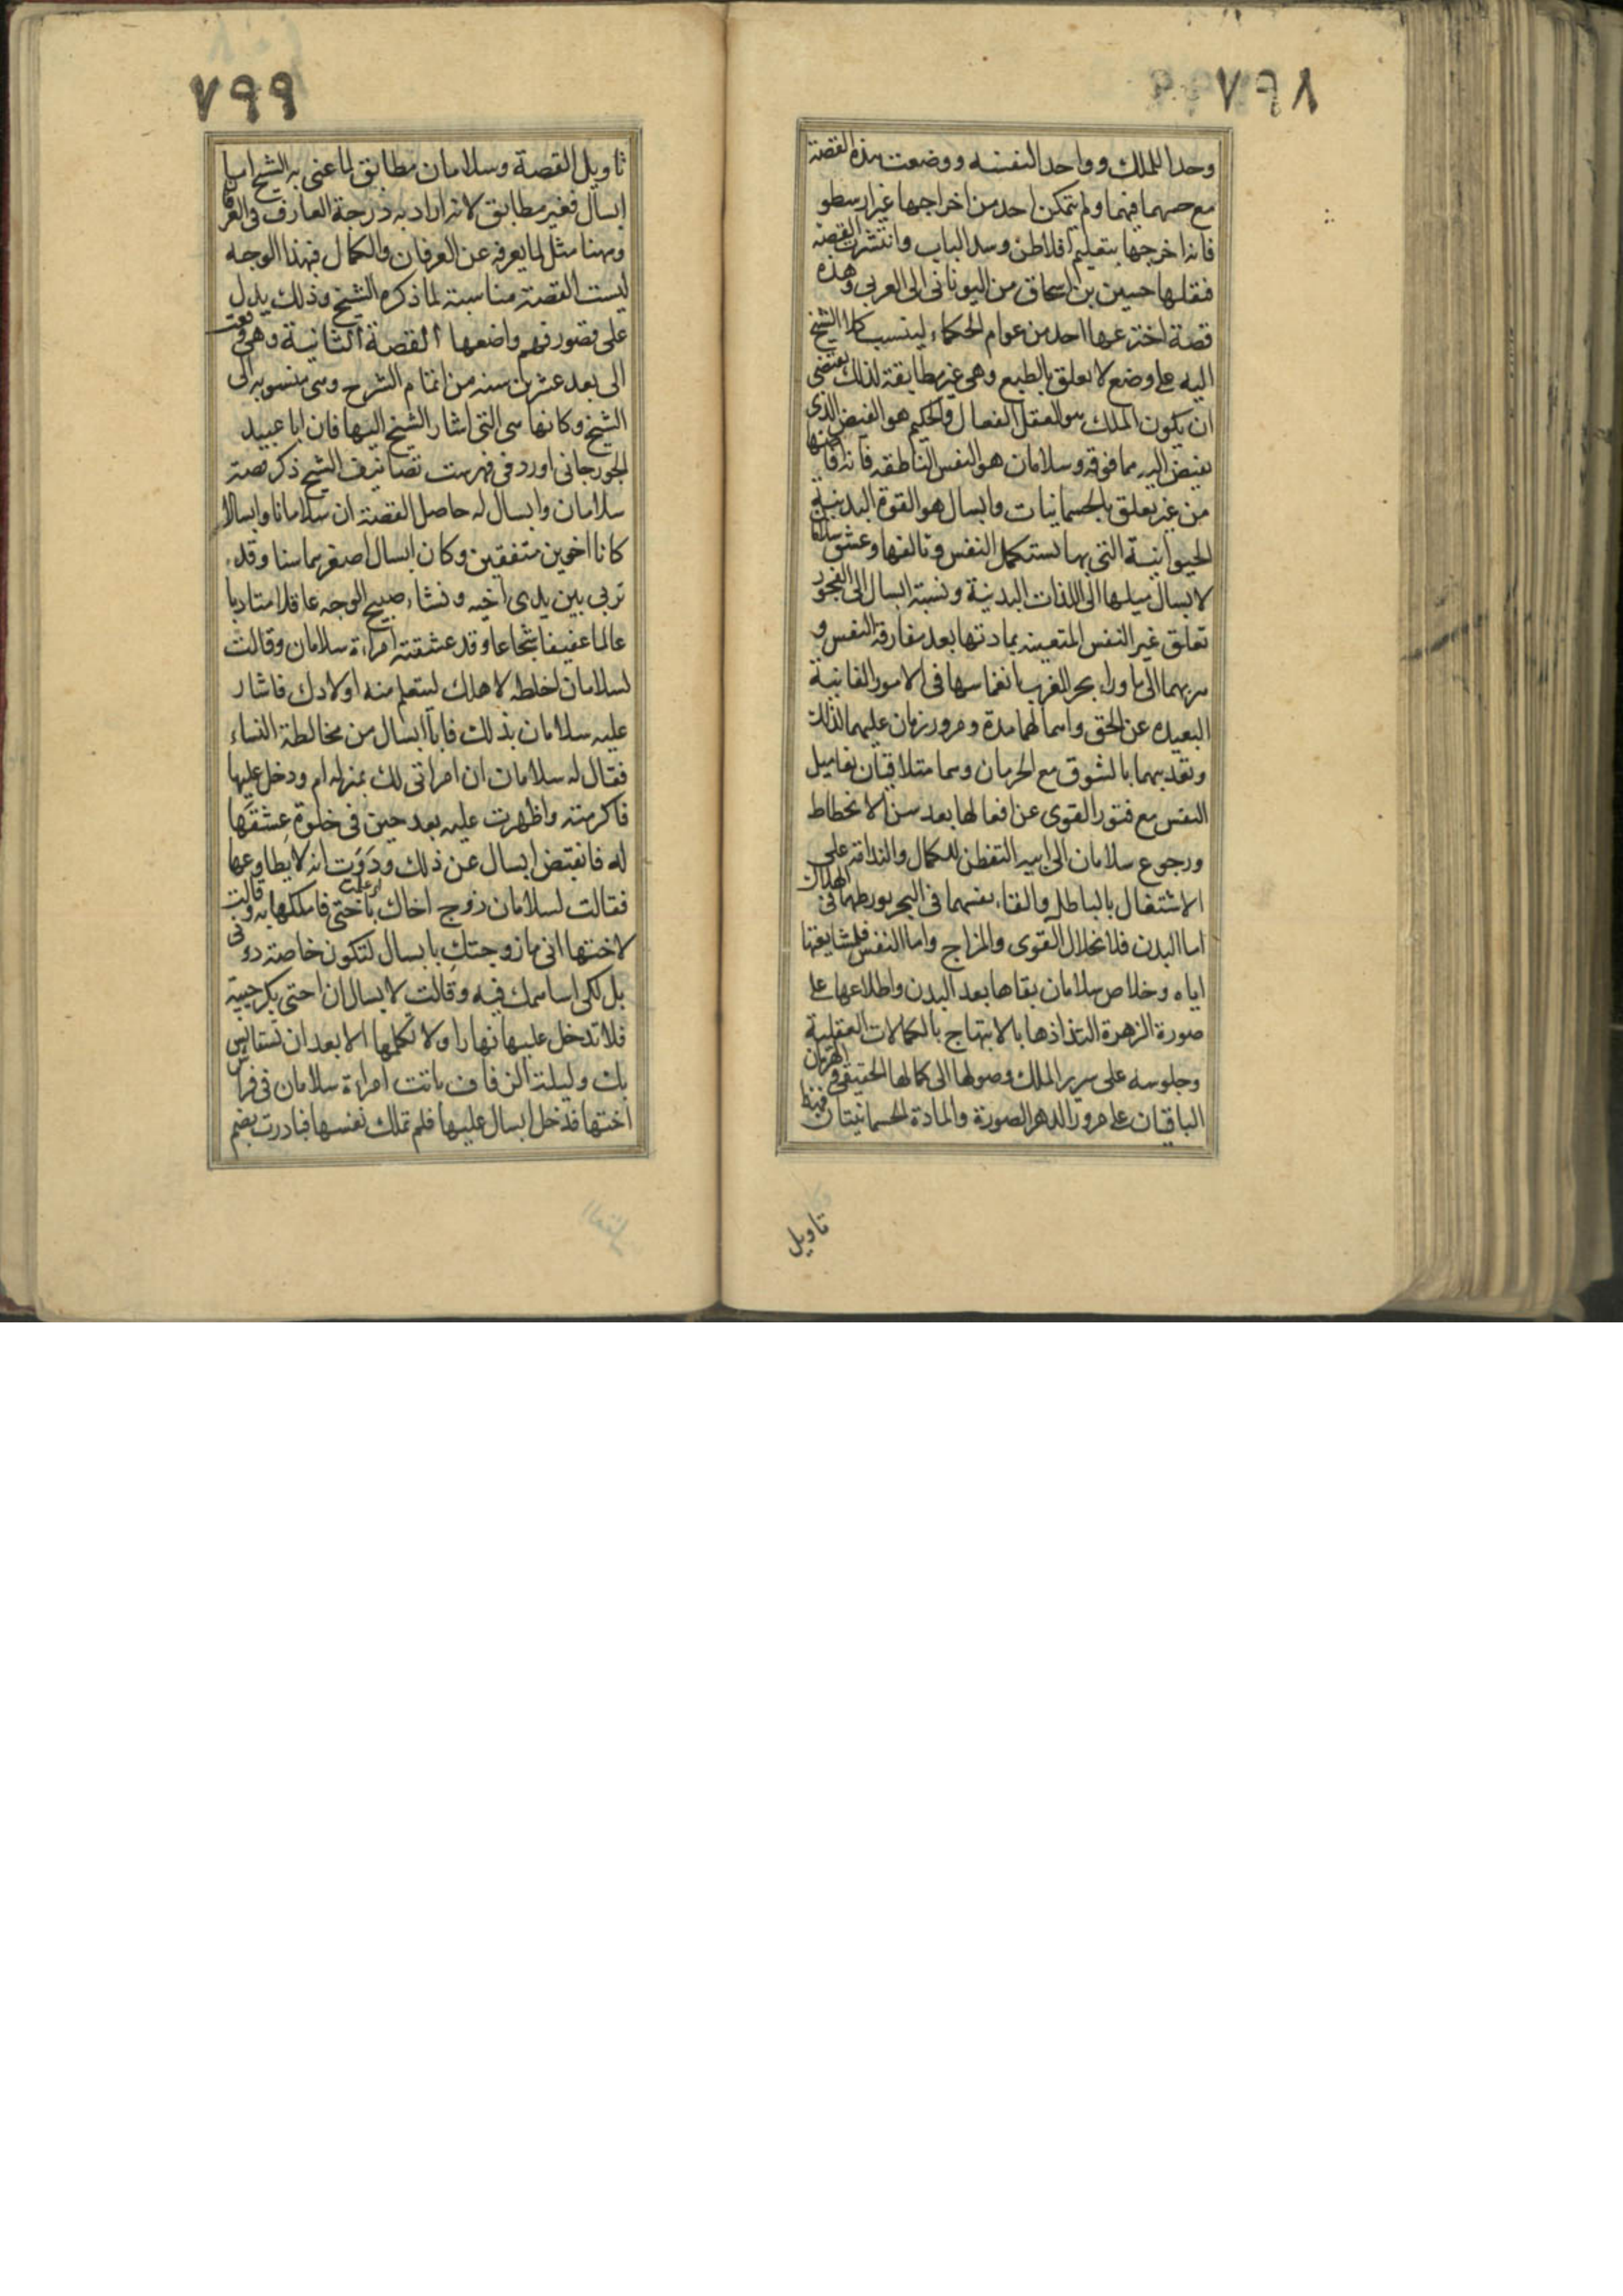 ٧٩٨
وحدا للملك وواحد النفسه ووضعت هذه القصة
مع حصبهما فيهما ولم يتمكن احد من اخراجها غير ارسطو
فانه اخرجها بتعليم افلاطن وسد الباب وانتشرت القصة
فنقلها حسين بن اسحاق من اليوناني الى العربي وهذه
قصة اخترعها احد من عوام الحكماء لينسب كلام الشيخ
اليه على وضع لا يعلق بالطبع وهي غير مطابقة لذلك يقتضى
ان يكون الملك هو العقل الفعال والحكيم هو الفيض الذى
يفيض اليه مما فوقه وسلامان هو النفس الناطقه فانه افاضها
من غير تعلق بالجسمانيات وابسال هو القوة البدنية
الحيوانية التى بها تستكمل النفس وتالفها وعشق سلامان
لابسال ميلها الى اللذات البدنية ونسبة ابسال الى الفجور
تعلق غير النفس المتعينه بمادتها بعد مفارقة النفس و
هربهما الى ماوراء بحر المغرب انغماسها فى الامور الفانية
البعيده عن الحق واهمالهما مدة ومرور زمان عليهما لذلك
وتعذيبهما بالشوق مع الحرمان وهما متلاقيان تعاميل
النفس مع فتور القوى عن افعالها بعد سن الانحطاط
ورجوع سلامان الى ابيه التفطن للكمال والندامة على
الاشتغال بالباطل والقاء نفسهما فى البحر تورطهما فى الهلاك
اما البدن فلانحلال القوى والمزاج واما النفس فلمشايعتها
اياه وخلاص سلامان بقاها بعد البدن واطلاعها على
صورة الزهرة التذاذها بالابتهاج بالكمالات العقلية
وجلوسه على سرير الملك وصولها الى كمالها الحقيقى والهرمان
الباقيان على مرور الدهر الصورة والمادة الجسمانيتان فهذا
تاويل
٧٩٩
تاويل القصة وسلامان مطابق لما عنى به الشيخ اما
ابسال فغير مطابق لانه اراد به درجة العارف فى العرفان
وههنا مثل لما يعرفه عن العرفان والكمال فبهذا الوجه
ليست القصة مناسبة لما ذكره الشيخ وذلك يدل
على قصور فهم واضعها القصة الثانية وهى وقعت
الى بعد عشرين سنه من اتمام الشرح وهى منسوبه الى
الشيخ وكانها هى التى اشار الشيخ اليها فان ابا عبيد
الجورجانى اورد فى فهرست تصانيف الشيخ ذكر قصة
سلامان وابسال له حاصل القصة ان سلامانا وابسالا
كانا اخوين متفقين وكان ابسال اصغرهما سنا وقد
تربى بين يدى اخيه ونشاء صبيح الوجه عاقلا متاديا
عالما عفيفا شجاعا وقد عشقته امراءة سلامان وقالت
لسلامان اخلطه لاهلك ليتعلم منه اولادك فاشار
عليه سلامان بذلك فابا ابسال من مخالطة النساء
فقال له سلامان ان امراتى لك بمنزله ام ودخل عليها
فاكرمته واظهرت عليه بعد حين فى خلوة عشقها
له فانقبض ابسال عن ذلك ودوت انه لا يطاوعها
فقالت لسلامان زوج اخاك باختى فاملكها به وقالت
لاختها انى ما زوجتك بابسال لتكون خاصة دونى
بل لكى اساهمك فيه وقالت لابسال ان اختى بكر حيية
فلا تدخل عليها نهارا ولا تكلمها الا بعد ان تستانس
بك وليلة الزفاف باتت امراءة سلامان فى فراش
اختها فدخل ابسال عليها فلم تملك نفسها فبادرت بضم